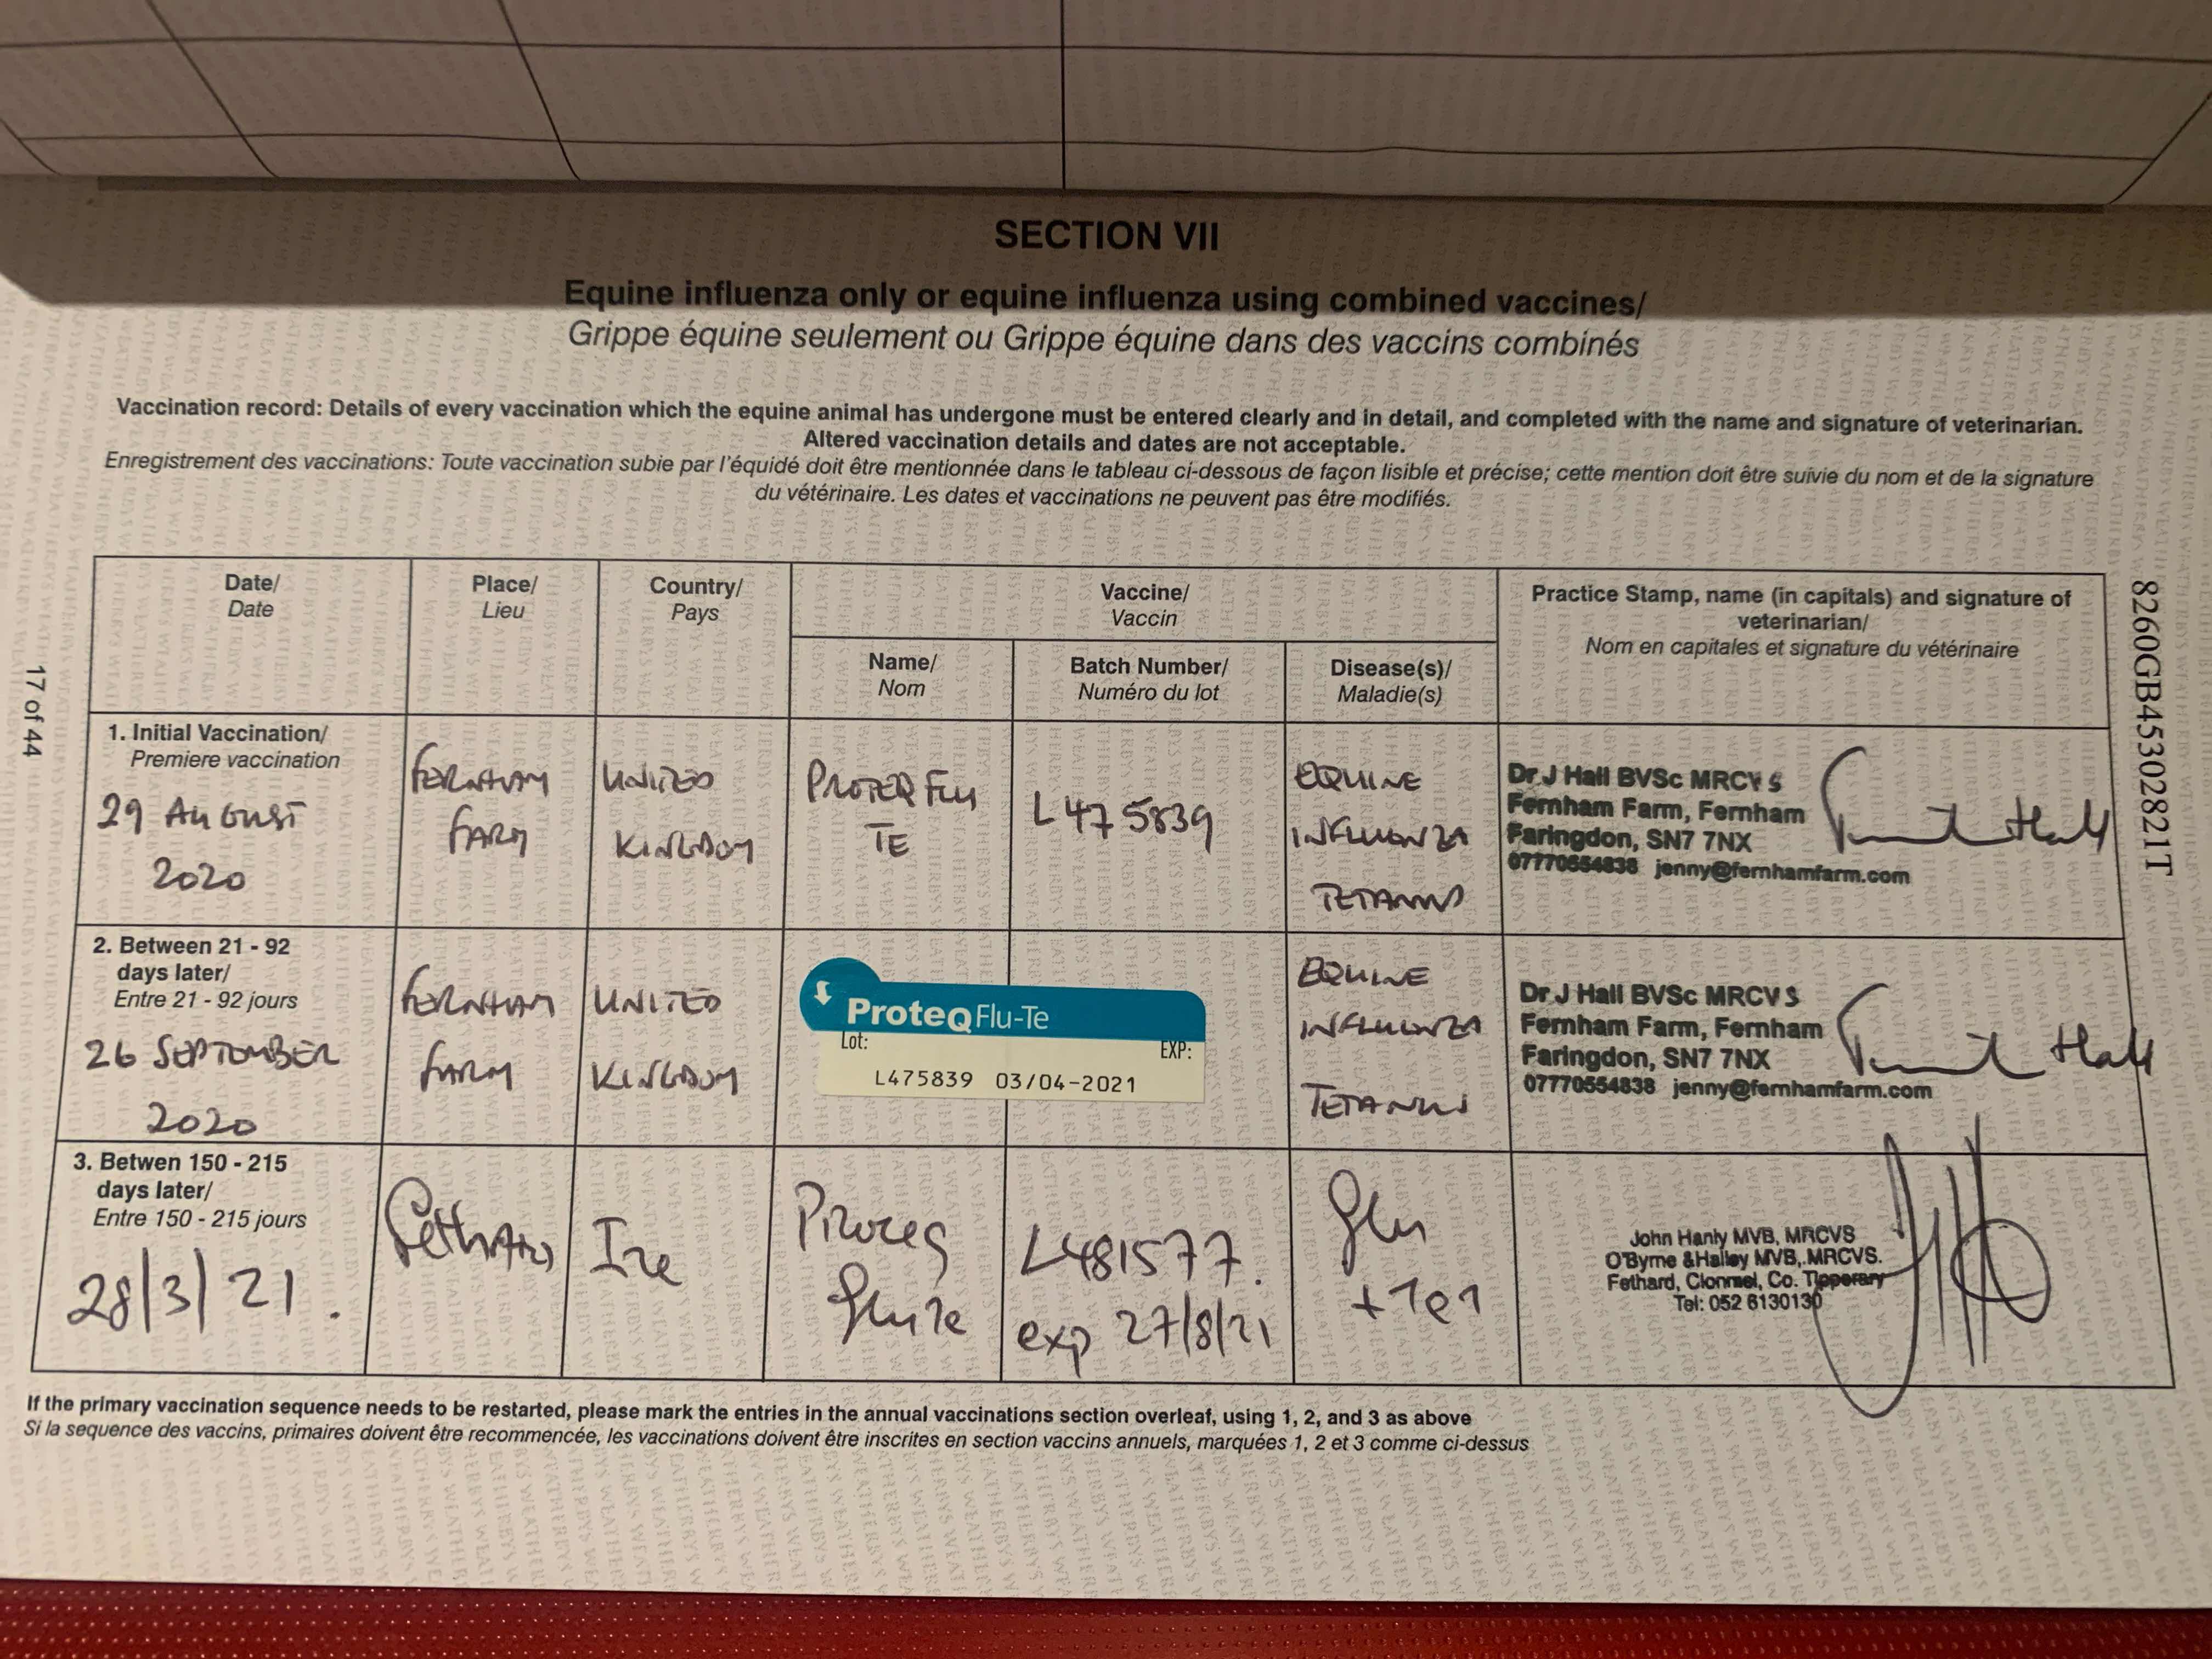 SECTION VII
Equine influenza only or equine influenza using combined vaccines/
Grippe équine seulement ou Grippe équine dans des vaccins combinés
Vaccination record: Details of every vaccination which the equine animal has undergone must be entered clearly and in detail, and completed with the name and signature of veterinarian.
Altered vaccination details and dates are not acceptable.
Enregistrement des vaccinations: Toute vaccination subie par l'équidé doit être mentionnée dans le tableau ci-dessous de façon lisible et précise; cette mention doit être suivie du nom et de la signature
du vétérinaire. Les dates et vaccinations ne peuvent pas être modifiés.
Date/
Date
Place/
Lieu
Country/
Pays
Vaccine/
Vaccin
Name/
Nom
Batch Number/
Numéro du lot
Disease(s)/
Maladie(s)
Practice Stamp, name (in capitals) and signature of
veterinarian/
Nom en capitales et signature du vétérinaire
1. Initial Vaccination/
Premiere vaccination
29 AUGUST
2020
FERNHAM
FARM
UNITED
KINGDOM
PROTEQ FLU
TE
L475839
EQUINE
INFLUENZA
TETANUS
Dr J Hall BVSc MRCVS
Fernham Farm, Fernham
Faringdon, SN7 7NX
07770554838 jenny@fernhamfarm.com
2. Between 21 - 92
days later/
Entre 21 - 92 jours
26 SEPTEMBER
2020
FERNHAM
FARM
UNITED
KINGDOM
ProteqFlu-Te
Lot:
EXP:
L475839 03/04-2021
EQUINE
INFLUENZA
TETANUS
Dr J Hall BVSc MRCVS
Fernham Farm, Fernham
Faringdon, SN7 7NX
07770554838 jenny@fernhamfarm.com
3. Betwen 150 - 215
days later/
Entre 150 - 215 jours
28/3/21.
Fethard
Ire
Proteq
Flu Te
L481577.
exp 27/8/21
Flu
+ Tet
John Hanly MVB, MRCVS
O'Byrne &Halley MVB,.MRCVS.
Fethard, Clonmel, Co. Tipperary
Tel: 052 6130130
If the primary vaccination sequence needs to be restarted, please mark the entries in the annual vaccinations section overleaf, using 1, 2, and 3 as above
Si la sequence des vaccins, primaires doivent être recommencée, les vaccinations doivent être inscrites en section vaccins annuels, marquées 1, 2 et 3 comme ci-dessus
17 of 44
8260GB45302821T